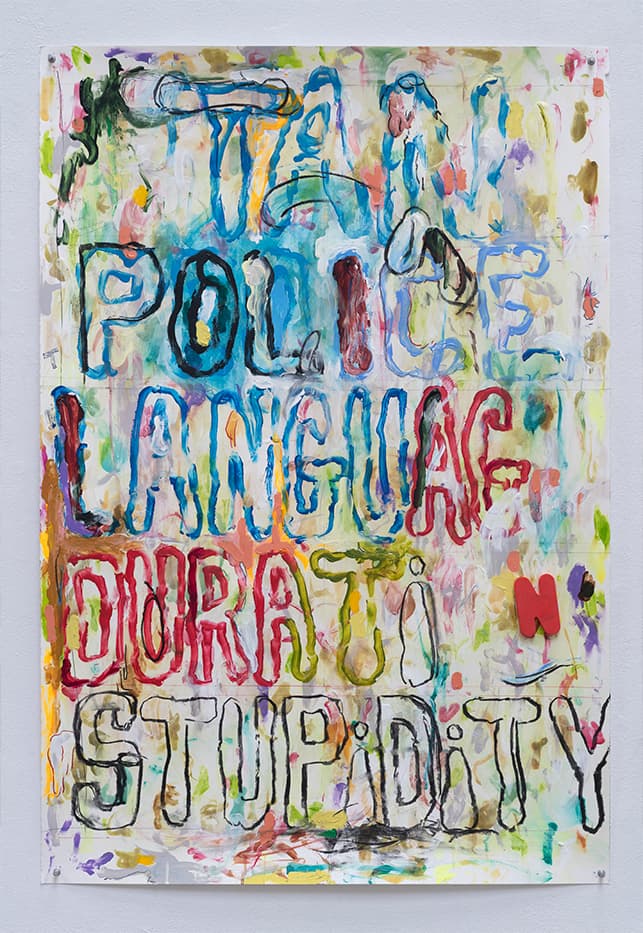 TAN
POLICE
LANGUAG
DURATi N
STUPiDiTY